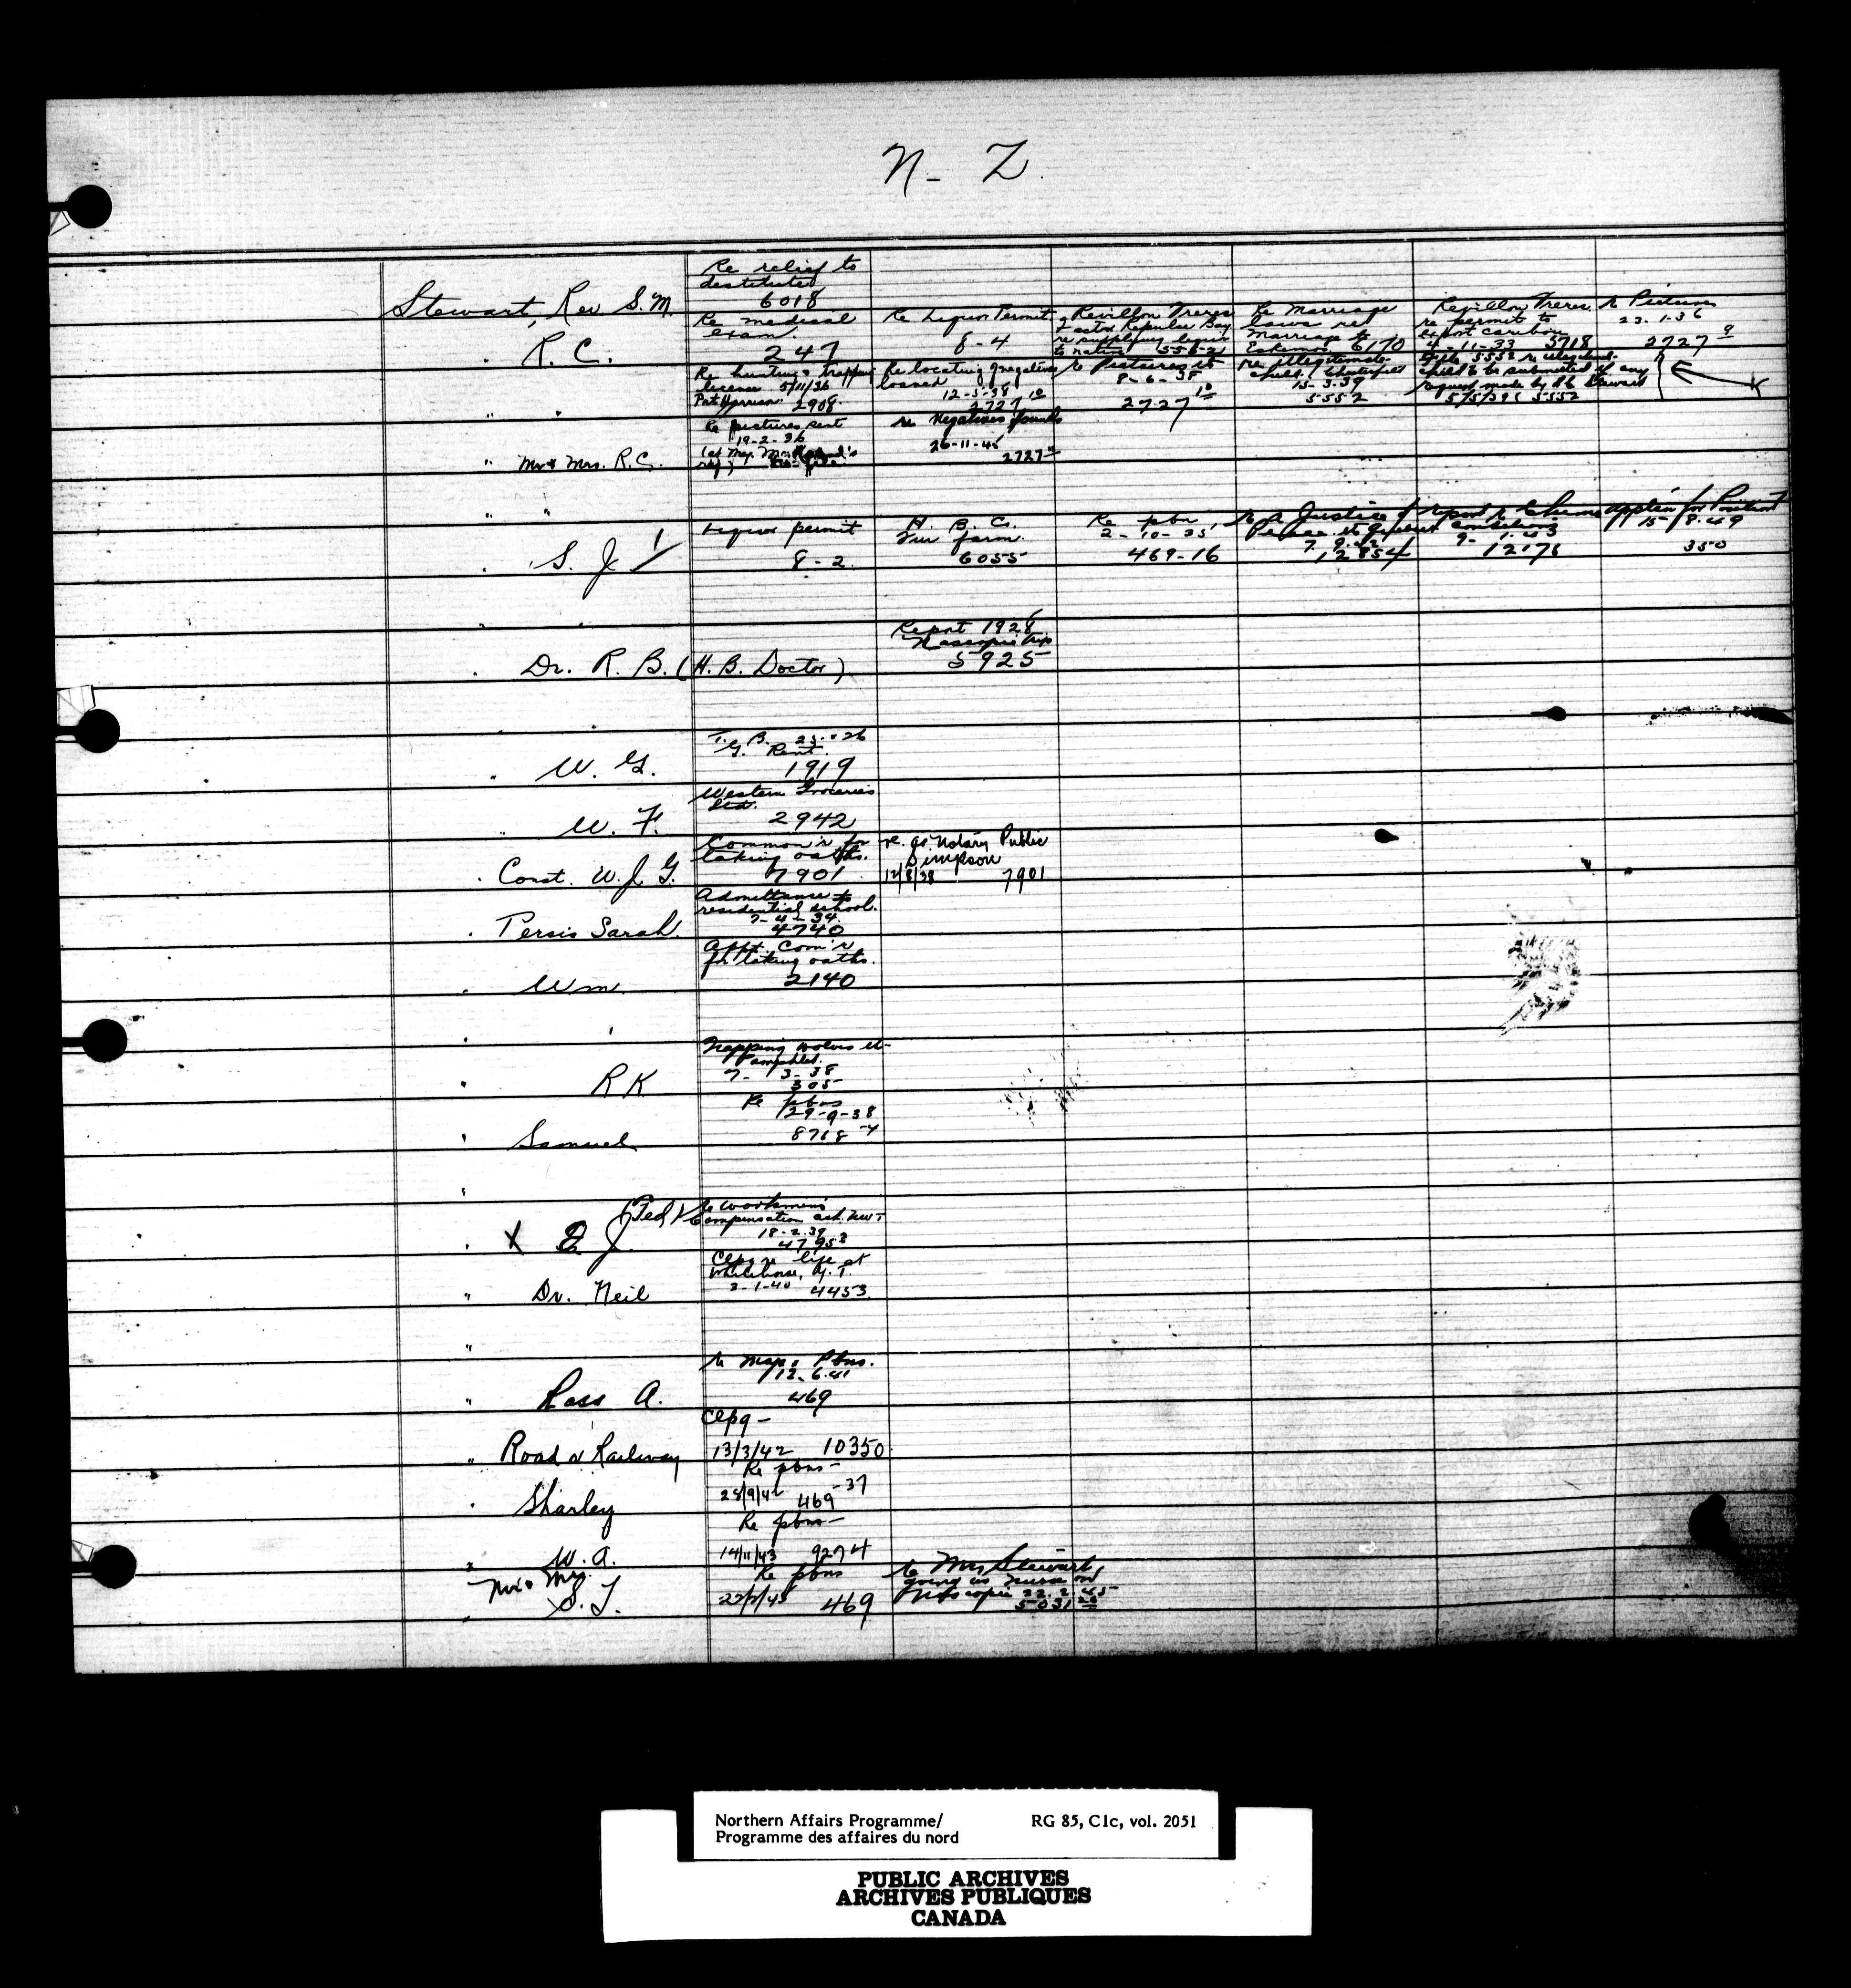 N - Z.
Stewart, Rev S. M.
Re relief to
destitutes
6018
" R. C.
Re medical
exam.
247
Re Liquor Permit.
8-4
Revillon Freres
Repulse Bay
re supplying liquor
to natives
Re Marriage
laws re
marriage to
Eskimos 6170
Revillon Freres
re permit to
export caribou
4-11-33 5718
Re Pictures
23-1-36
2727 9
" "
Re hunting & trapping
license 5/11/36
Pat Harrison 2908
Re locating of negatives
loaned
12-5-38
2727 10
Re Pictures
8-6-38
2727 10
Re illegitimate
child (Chesterfield
15-3-39
5552
5552 re
child to be submitted if any
request made by R C Stewart
5/5/39 (5552
" Mr & Mrs. R. C.
Re pictures sent
19-2-36
re Negatives found
26-11-45
2727
" "
" S. J.
Liquor permit
8-2
H. B. Co.
Fur farm
6055
Re pbn,
2-10-35
469-16
Re Justice of
Peace
12854
Report
conditions
9-1-43
12178
Applic'n for Position
15-8-49
350
" "
" Dr. R. B. (H. B. Doctor)
Report 1928
Nascopie trip
5925
" "
" W. G.
T. G. B.
Rent.
1919
" W. F.
Western Groceries
Ltd.
2942
" Const. W. J. G.
Common'r for
taking oaths.
7901
re. as Notary Public
Simpson
12/8/38 7901
" Persis Sarah.
Admittance to
residential school.
7-4-34.
4740
" Wm.
Appt. Com'r
for taking oaths.
2140
" "
" R K
Trapping wolves etc
Pamphlet.
7-3-38
305
" Samuel
Re pbns
29-9-38
8768-4
"
" X J. (Ted)
Re Workmen's
Compensation act. NWT
18-2-39
4795 3
" Dr. Neil
Clpg re life at
Whitehorse, Y. T.
3-1-40 4453
"
" Ross A.
Re Map & Pbns.
12-6-41
469
" Road & Railway
Clpg -
13/3/42 10350
" Sharley
Re pbns -
469-37
" W. A.
Re pbns -
14/11/43 9274
" Mr & Mrs.
S. T.
Re pbns
469
Re Mrs Stewart
going as nurse on
Nascopie 22-2-45
5031
Northern Affairs Programme/ RG 85, C1c, vol. 2051
Programme des affaires du nord
PUBLIC ARCHIVES
ARCHIVES PUBLIQUES
CANADA